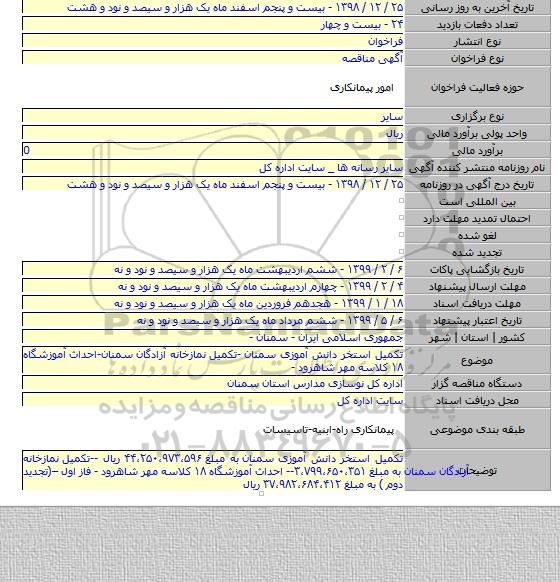 تاریخ آخرین به روز رسانی ۲۵ / ۱۲ / ۱۳۹۸ - بیست و پنجم اسفند ماه یک هزار و سیصد و نود و هشت
تعداد دفعات بازدید ۲۴ - بیست و چهار
نوع انتشار فراخوان
نوع فراخوان آگهی مناقصه
حوزه فعالیت فراخوان امور پیمانکاری
نوع برگزاری سایر
واحد پولی برآورد مالی ریال
برآورد مالی 0
نام روزنامه منتشر کننده آگهی سایر رسانه ها _ سایت اداره کل
تاریخ درج آگهی در روزنامه ۲۵ / ۱۲ / ۱۳۹۸ - بیست و پنجم اسفند ماه یک هزار و سیصد و نود و هشت
بین المللی است
احتمال تمدید مهلت دارد
لغو شده
تجدید شده
تاریخ بازگشایی پاکات ۶ / ۲ / ۱۳۹۹ - ششم اردیبهشت ماه یک هزار و سیصد و نود و نه
مهلت ارسال پیشنهاد ۴ / ۲ / ۱۳۹۹ - چهارم اردیبهشت ماه یک هزار و سیصد و نود و نه
مهلت دریافت اسناد ۱۸ / ۱ / ۱۳۹۹ - هجدهم فروردین ماه یک هزار و سیصد و نود و نه
تاریخ اعتبار پیشنهاد ۶ / ۵ / ۱۳۹۹ - ششم مرداد ماه یک هزار و سیصد و نود و نه
کشور | استان | شهر جمهوری اسلامی ایران - سمنان -
موضوع تکمیل استخر دانش آموزی سمنان -تکمیل نمازخانه آزادگان سمنان-احداث آموزشگاه
۱۸ کلاسه مهر شاهرود -
دستگاه مناقصه گزار اداره کل نوسازی مدارس استان سمنان
محل دریافت اسناد سایت اداره کل
پایگاه اطلاع رسانی مناقصه و مزایده
طبقه بندی موضوعی پیمانکاری راه-ابنیه-تاسیسات
۰۲۱-۸۸۳۴۹۶۷۰-۵
توضیحات تکمیل استخر دانش آموزی سمنان به مبلغ ۴۴،۲۵۰،۹۷۳،۵۹۶ ریال --تکمیل نمازخانه
آزادگان سمنان به مبلغ ۳،۷۹۹،۶۵۰،۳۵۱-- احداث آموزشگاه ۱۸ کلاسه مهر شاهرود - فاز اول –(تجدید
دوم ) به مبلغ ۳۷،۹۸۲،۶۸۴،۴۱۲ ریال